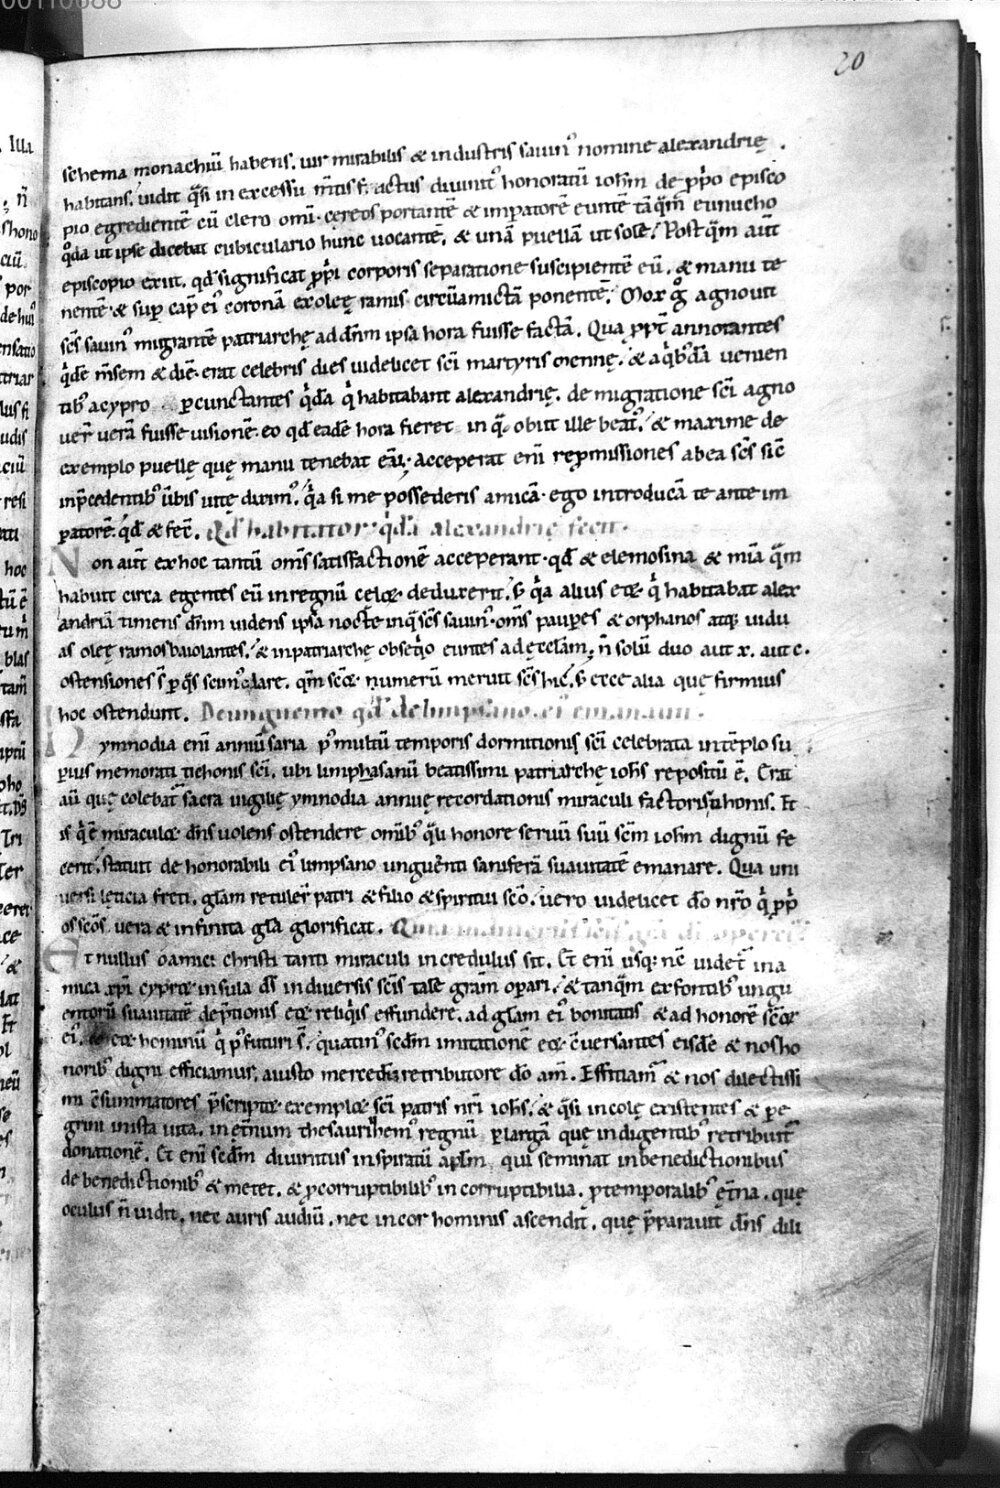 20
schema monachiū habens. uir mirabilis & industris sauinꝰ nomine alexandrię
habitans. uidit q̄si in excessu m̄tis f; actus diuinitꝰ honoratū ioh̄m de p̄p̄o episco
pio egredientē cū clero om̄i. cereos portantē & imꝑatorē euntē tāq̄m eunucho
q̄da ut ipse dicebat cubiculario hunc uocantē. & unā puellā ut solē. Postq̄m aūt
episcopio exiit. qd̄ significat p̄p̄i corporis separatione suscipientē eū. & manu te
nentē & suꝑ cap̄ eiꝰ coronā ex oleę ramis circūamictā ponentē. Mox g̊ agnouit
sc̄s sauinꝰ migrantē patriarchę ad dn̄m ipsa hora fuisse factā. Qua ꝓpt̄ annotantes
q̄dē m̄sem & diē. erat celebris dies uidelicet sc̄i martyris mennę. & a q̄bꝰdā uenien
tibꝰ a cypro ꝑcunctantes q̄dā q̄ habitabant alexandrię. de migratione sc̄i agno
uer̄ uerā fuisse uisionē. eo qd̄ eadē hora fieret in q̄ obiit ille beatꝰ. & maxime de
exemplo puellę quę manu tenebat eū. acceperat eni repmissiones ab ea sc̄s sic̄
in p̄cedentibꝰ ūbis uitę diximꝰ. q̄a si me possederis amicā. ego introducā te ante im
ꝑatorē. qd̄ & fec̄. Qd̄ habitator q̄dā alexandrię fecit.
Non aūt ex hoc tantū om̄s satisfactionē acceperant. qd̄ & elemosina & mia q̄m
habuit circa egentes eū in regnū celoꝝ deduxerit. s; q̄a alius etiā q̄ habitabat alex
andriā timens dn̄m uidens ipsa nocte in q̄ sc̄s sauinꝰ. om̄s pauꝑes & orphanos atq; uidu
as oleę ramos baiolantes. & in patriarchę obseq̄o euntes ad ęcclam. n̄ solū duo aut x. aut c.
ostensiones s̄ ꝑ q̄s scimꝰ clare. qm̄ sc̄oꝝ numerū meruit sc̄s hic. s; ecce alia quę firmius
hoc ostendunt. De unguento qd̄ de limpsano. eiꝰ emanauit.
Hymnodia eni anniūsaria p̄ multū temporis dormitionis sc̄i celebrata in tēplo su
ꝑius memorati tichonis sc̄i. ubi limphasanū beatissimi patriarchę ioh̄s repositū ē. Erat
aū quę colebat̄ sacra uigilię ymnodia annuę recordationis miraculi factoris tichonis. Et
is q̄ ē miraculoꝝ dn̄s uolens ostendere om̄ibꝰ q̄li honore seruū suū sc̄m ioh̄m dignū fe
cerit. statuit de honorabili eiꝰ limpsano unguenti saniferā suauitatē emanare. Qua uni
uersi leticia freti. gl̄am retuler̄ patri & filio & spiritui sc̄o. uero uidelicet do nr̄o q̄ p̄p̄
os sc̄os uera & infinita gl̄a glorificat.
Et nullus o amici christi tanti miraculi incredulus sit. Et eni usq; nc̄ uidet̄ in a
mica xp̄i cyproꝝ insula di in diuersis sc̄is tale gr̄am oꝑari. & tanq̄m ex fontibꝰ ungu
entorū suauitatē de p̄tionis eoꝝ reliq̄is effundere. ad gl̄am eiꝰ bonitatis & ad honorē sc̄oꝝ
hominū q̄ p̄ futuri s̄. quatinꝰ secdm imitationē eoꝝ c̄uersantes eisdē & nos ho
noribꝰ digni efficiamus. a iusto mercedis retributore do am̄. Efficiam̄ & nos dilectissi
mi c̄summatores p̄scriptoꝝ exemploꝝ sc̄i patris nr̄i ioh̄s. & q̄si incolę existentes & ꝑe
grini in ista uita. in et̄num thesaurihemꝰ regnū ꝑ largā quę indigentibꝰ retribuit̄
donationē. Et eni secdm diuinitus inspiratū aplm̄. qui seminat in benedictionibus
de benedictionibꝰ & metet. & ꝓ corruptibilibꝰ incorruptibilia. ꝓ temporalibꝰ et̄na. quę
oculus n̄ uidit. nec auris audiū. nec in cor hominis ascendit. quę p̄parauit dn̄s dili